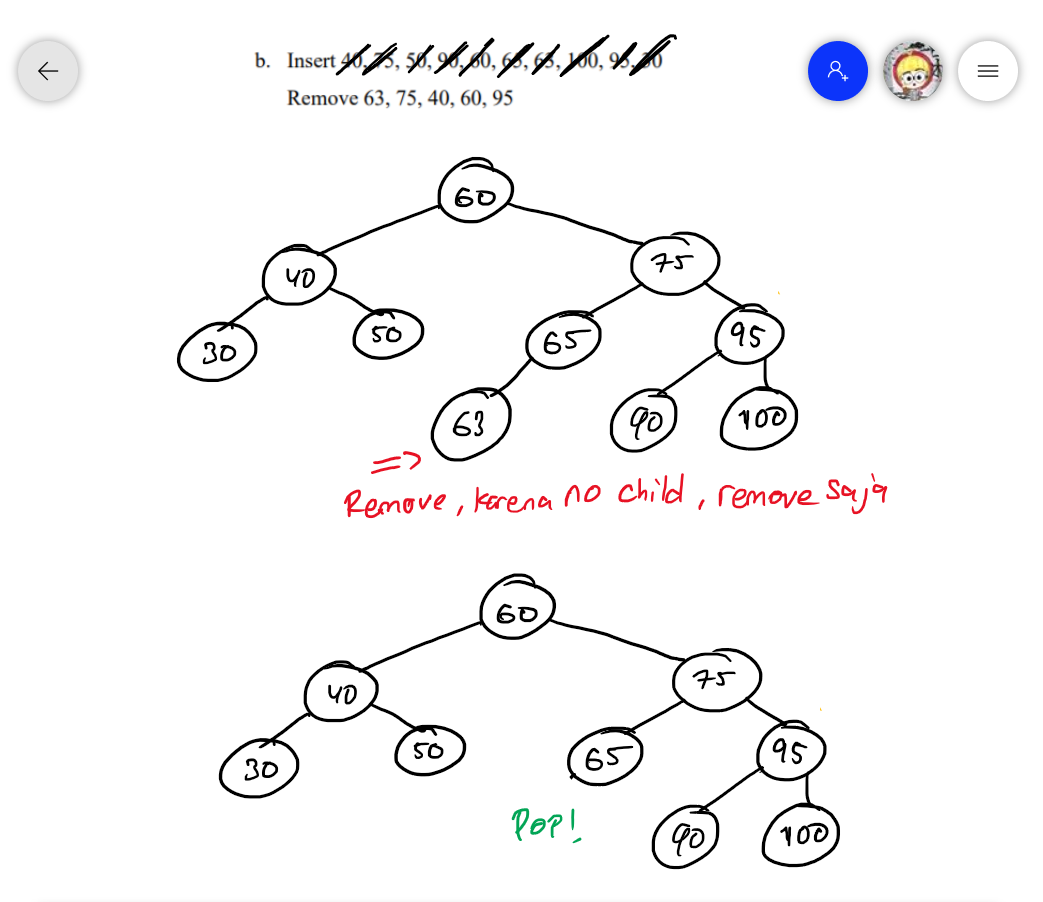 b. Insert 40, 75, 50, 90, 60, 65, 63, 100, 95, 30
Remove 63, 75, 40, 60, 95
60
40
75
30
50
65
95
63
90
100
=>
Remove, karena no child, remove saja
60
40
75
30
50
65
95
Pop!
90
100